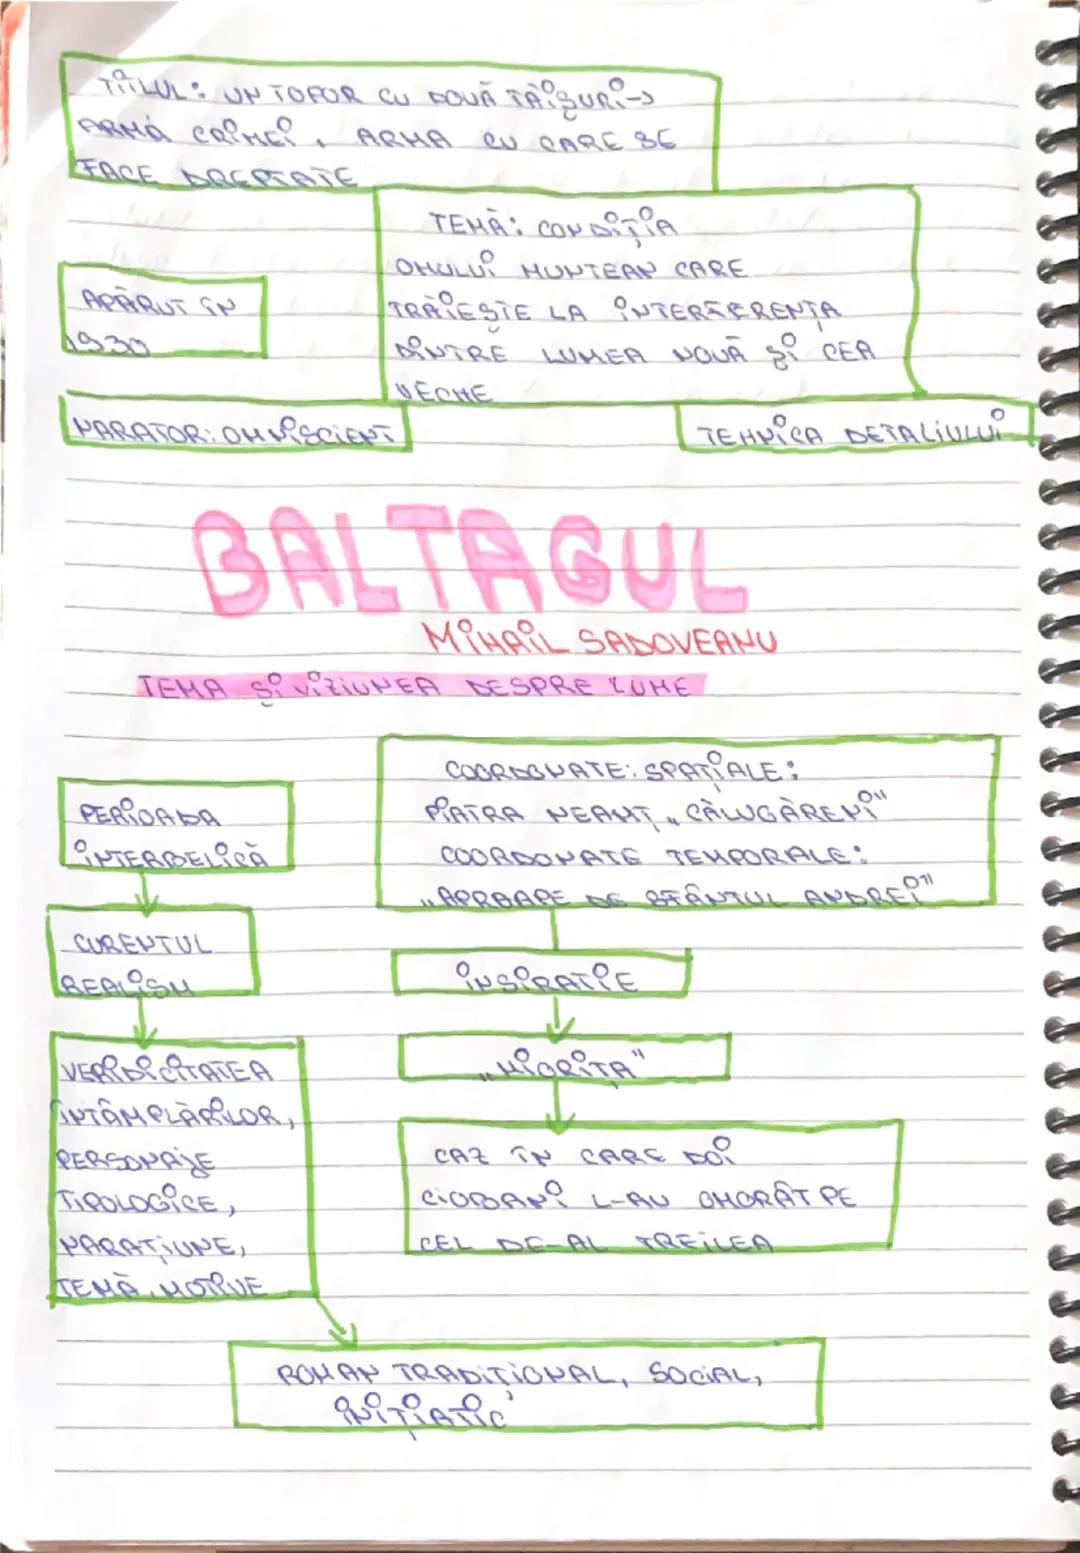 TITLUL: UN TOPOR CU DOUĂ TĂIȘURI->
ARMA CRIMEI, ARMA CU CARE SE
FACE DREPTATE
TEMĂ: CONDIȚIA
OMULUI MUNTEAN CARE
TRĂIEȘTE LA INTERFERENȚA
DINTRE LUMEA NOUĂ ȘI CEA
VECHE
APĂRUT ÎN
1930
NARATOR: OMNISCIENT
TEHNICA DETALIULUI
BALTAGUL
MIHAIL SADOVEANU
TEMA ȘI VIZIUNEA DESPRE LUME
PERIOADA
INTERBELICĂ
CURENTUL
REALISM
VERIDICITATEA
ÎNTÂMPLĂRILOR,
PERSONAJE
TIPOLOGICE,
NARAȚIUNE,
TEMĂ, MOTIVE
COORDONATE: SPAȚIALE:
PIATRA NEAMȚ „CĂLUGĂRENI"
COORDONATE TEMPORALE:
„APROAPE DE SFÂNTUL ANDREI"
INSPIRAȚIE
„MIORIȚA"
CAZ ÎN CARE DOI
CIOBANI L-AU OMORÂT PE
CEL DE-AL TREILEA
ROMAN TRADIȚIONAL, SOCIAL,
INIȚIATIC